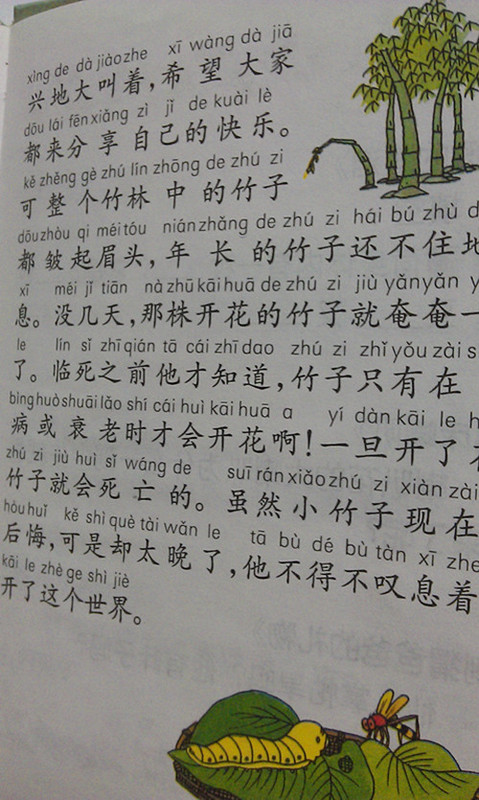 xìng de dà jiào zhe xī wàng dà jiā
兴地大叫着，希望大家
dōu lái fēn xiǎng zì jǐ de kuài lè
都来分享自己的快乐。
kě zhěng gè zhú lín zhōng de zhú zi
可整个竹林中的竹子
dōu zhòu qi méi tóu nián zhǎng de zhú zi hái bú zhù d
都皱起眉头，年长的竹子还不住地
xī méi jǐ tiān nà zhū kāi huā de zhú zi jiù yǎn yǎn y
息。没几天，那株开花的竹子就奄奄一
le lín sǐ zhī qián tā cái zhī dao zhú zi zhǐ yǒu zài s
了。临死之前他才知道，竹子只有在
bìng huò shuāi lǎo shí cái huì kāi huā a yí dàn kāi le h
病或衰老时才会开花啊！一旦开了
zhú zi jiù huì sǐ wáng de suī rán xiǎo zhú zi xiàn zài
竹子就会死亡的。虽然小竹子现在
hòu huǐ kě shì què tài wǎn le tā bù dé bù tàn xī zhe
后悔，可是却太晚了，他不得不叹息着
kāi le zhè ge shì jiè
开了这个世界。